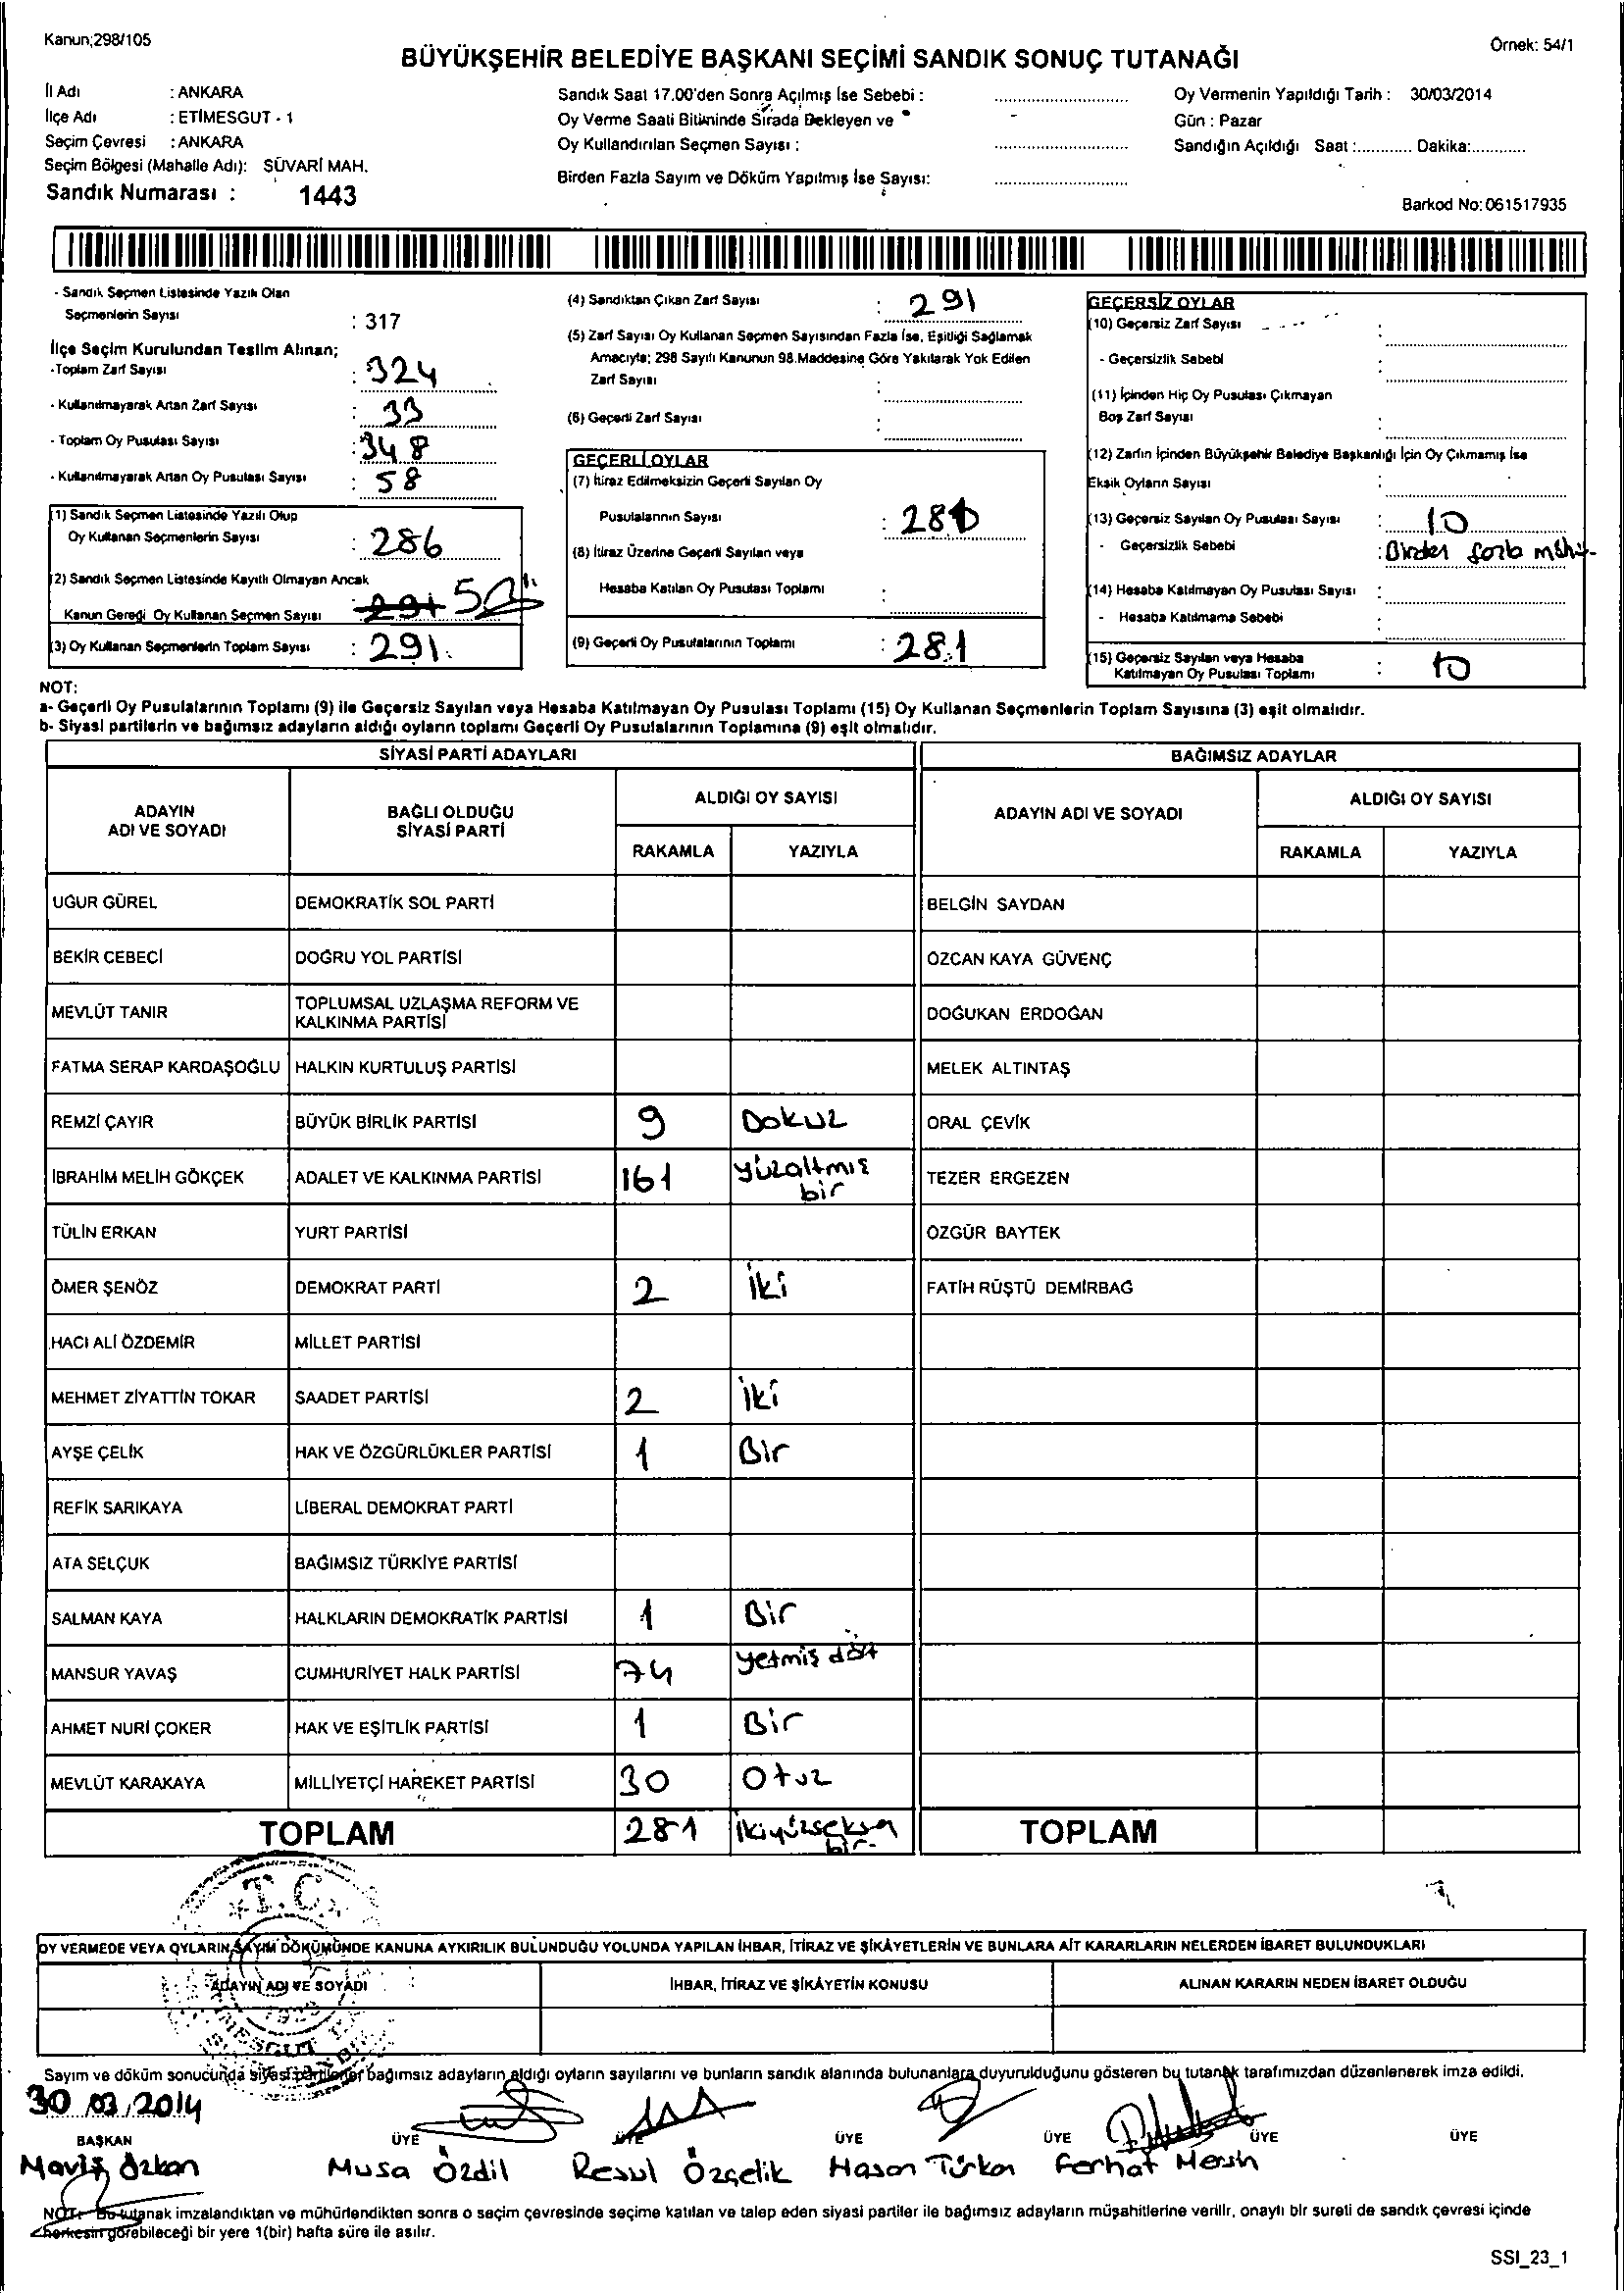 Kanun;298/105
Örnek: 54/1
BÜYÜKŞEHİR BELEDİYE BAŞKANI SEÇİMİ SANDIK SONUÇ TUTANAĞI
İl Adı : ANKARA
İlçe Adı : ETİMESGUT - 1
Seçim Çevresi : ANKARA
Seçim Bölgesi (Mahalle Adı): SÜVARİ MAH.
Sandık Numarası : 1443
Sandık Saat 17.00'den Sonra Açılmış İse Sebebi :
Oy Verme Saati Bitiminde Sırada Bekleyen ve
Oy Kullandırılan Seçmen Sayısı :
Birden Fazla Sayım ve Döküm Yapılmış İse Sayısı:
Oy Vermenin Yapıldığı Tarih : 30/03/2014
Gün : Pazar
Sandığın Açıldığı Saat :............ Dakika:............
Barkod No: 061517935
- Sandık Seçmen Listesinde Yazılı Olan
Seçmenlerin Sayısı : 317
İlçe Seçim Kurulundan Teslim Alınan;
-Toplam Zarf Sayısı : 324
- Kullanılmayarak Artan Zarf Sayısı : 33
- Toplam Oy Pusulası Sayısı : 348
- Kullanılmayarak Artan Oy Pusulası Sayısı : 58
(1) Sandık Seçmen Listesinde Yazılı Olup
Oy Kullanan Seçmenlerin Sayısı : 286
(2) Sandık Seçmen Listesinde Kayıtlı Olmayan Ancak
Kanun Gereği Oy Kullanan Seçmen Sayısı : 291 5
(3) Oy Kullanan Seçmenlerin Toplam Sayısı : 291
(4) Sandıktan Çıkan Zarf Sayısı : 291
(5) Zarf Sayısı Oy Kullanan Seçmen Sayısından Fazla İse, Eşitliği Sağlamak
Amacıyla; 298 Sayılı Kanunun 98.Maddesine Göre Yakılarak Yok Edilen
Zarf Sayısı :
(6) Geçerli Zarf Sayısı :
GEÇERLİ OYLAR
(7) İtiraz Edilmeksizin Geçerli Sayılan Oy
Pusulalarının Sayısı : 281
(8) İtiraz Üzerine Geçerli Sayılan veya
Hesaba Katılan Oy Pusulası Toplamı :
(9) Geçerli Oy Pusulalarının Toplamı : 281
GEÇERSİZ OYLAR
(10) Geçersiz Zarf Sayısı :
- Geçersizlik Sebebi :
(11) İçinden Hiç Oy Pusulası Çıkmayan
Boş Zarf Sayısı :
(12) Zarfın İçinden Büyükşehir Belediye Başkanlığı İçin Oy Çıkmamış İse
Eksik Oyların Sayısı :
(13) Geçersiz Sayılan Oy Pusulası Sayısı : 10
- Geçersizlik Sebebi : Birden fazla mühür
(14) Hesaba Katılmayan Oy Pusulası Sayısı :
- Hesaba Katılmama Sebebi :
(15) Geçersiz Sayılan veya Hesaba
Katılmayan Oy Pusulası Toplamı : 10
NOT:
a- Geçerli Oy Pusulalarının Toplamı (9) ile Geçersiz Sayılan veya Hesaba Katılmayan Oy Pusulası Toplamı (15) Oy Kullanan Seçmenlerin Toplam Sayısına (3) eşit olmalıdır.
b- Siyasi partilerin ve bağımsız adayların aldığı oyların toplamı Geçerli Oy Pusulalarının Toplamına (9) eşit olmalıdır.
SİYASİ PARTİ ADAYLARI BAĞIMSIZ ADAYLAR
ADAYIN ADI VE SOYADI BAĞLI OLDUĞU SİYASİ PARTİ ALDIĞI OY SAYISI ADAYIN ADI VE SOYADI ALDIĞI OY SAYISI
RAKAMLA YAZIYLA RAKAMLA YAZIYLA
UĞUR GÜREL DEMOKRATİK SOL PARTİ BELGİN SAYDAN
BEKİR CEBECİ DOĞRU YOL PARTİSİ ÖZCAN KAYA GÜVENÇ
MEVLÜT TANIR TOPLUMSAL UZLAŞMA REFORM VE KALKINMA PARTİSİ DOĞUKAN ERDOĞAN
FATMA SERAP KARDAŞOĞLU HALKIN KURTULUŞ PARTİSİ MELEK ALTINTAŞ
REMZİ ÇAYIR BÜYÜK BİRLİK PARTİSİ 9 Dokuz ORAL ÇEVİK
İBRAHİM MELİH GÖKÇEK ADALET VE KALKINMA PARTİSİ 161 yüzaltmış bir TEZER ERGEZEN
TÜLİN ERKAN YURT PARTİSİ ÖZGÜR BAYTEK
ÖMER ŞENÖZ DEMOKRAT PARTİ 2 İki FATİH RÜŞTÜ DEMİRBAĞ
HACI ALİ ÖZDEMİR MİLLET PARTİSİ
MEHMET ZİYATTİN TOKAR SAADET PARTİSİ 2 İki
AYŞE ÇELİK HAK VE ÖZGÜRLÜKLER PARTİSİ 1 Bir
REFİK SARIKAYA LİBERAL DEMOKRAT PARTİ
ATA SELÇUK BAĞIMSIZ TÜRKİYE PARTİSİ
SALMAN KAYA HALKLARIN DEMOKRATİK PARTİSİ 1 Bir
MANSUR YAVAŞ CUMHURİYET HALK PARTİSİ 74 yetmiş dört
AHMET NURİ ÇOKER HAK VE EŞİTLİK PARTİSİ 1 Bir
MEVLÜT KARAKAYA MİLLİYETÇİ HAREKET PARTİSİ 30 Otuz
TOPLAM 281 İkiyüzseksen bir TOPLAM
T.C.
OY VERMEDE VEYA OYLARIN SAYIM DÖKÜMÜNDE KANUNA AYKIRILIK BULUNDUĞU YOLUNDA YAPILAN İHBAR, İTİRAZ VE ŞİKÂYETLERİN VE BUNLARA AİT KARARLARIN NELERDEN İBARET BULUNDUKLARI
ADAYIN ADI VE SOYADI İHBAR, İTİRAZ VE ŞİKÂYETİN KONUSU ALINAN KARARIN NEDEN İBARET OLDUĞU
Sayım ve döküm sonucunda siyasi partiler bağımsız adayların aldığı oyların sayılarını ve bunların sandık alanında bulunanlara duyurulduğunu gösteren bu tutanak tarafımızdan düzenlenerek imza edildi.
30.03.2014
BAŞKAN ÜYE ÜYE ÜYE ÜYE ÜYE ÜYE
Maviş Özkan Musa Özdil Resul Özçelik Hasan Türkan Ferhat Mersin
NOT: Bu tutanak imzalandıktan ve mühürlendikten sonra o seçim çevresinde seçime katılan ve talep eden siyasi partiler ile bağımsız adayların müşahitlerine verilir, onaylı bir sureti de sandık çevresi içinde
herkesin görebileceği bir yere 1(bir) hafta süre ile asılır.
SSI_23_1